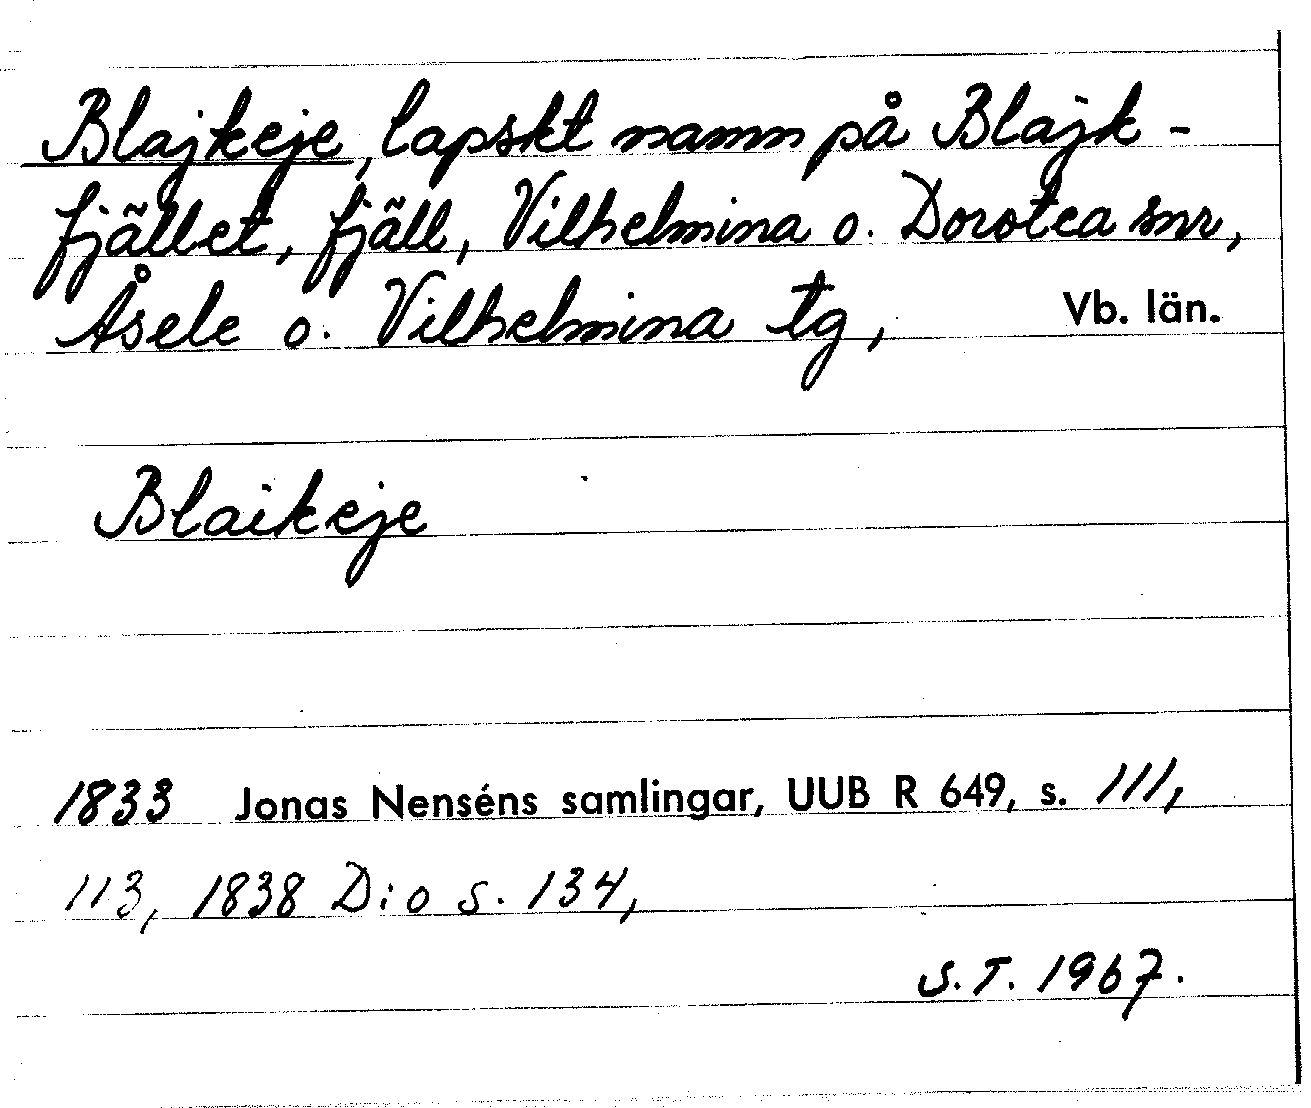 Blajkeje, lapskt namn på Blajk-
fjället, fjäll, Vilhelmina o. Dorotea snr,
Åsele o. Vilhelmina tg, Vb. län.
Blaikeje
1833 Jonas Nenséns samlingar, UUB R 649, s. 111,
113, 1838 D:o s. 134,
S.T. 1967.